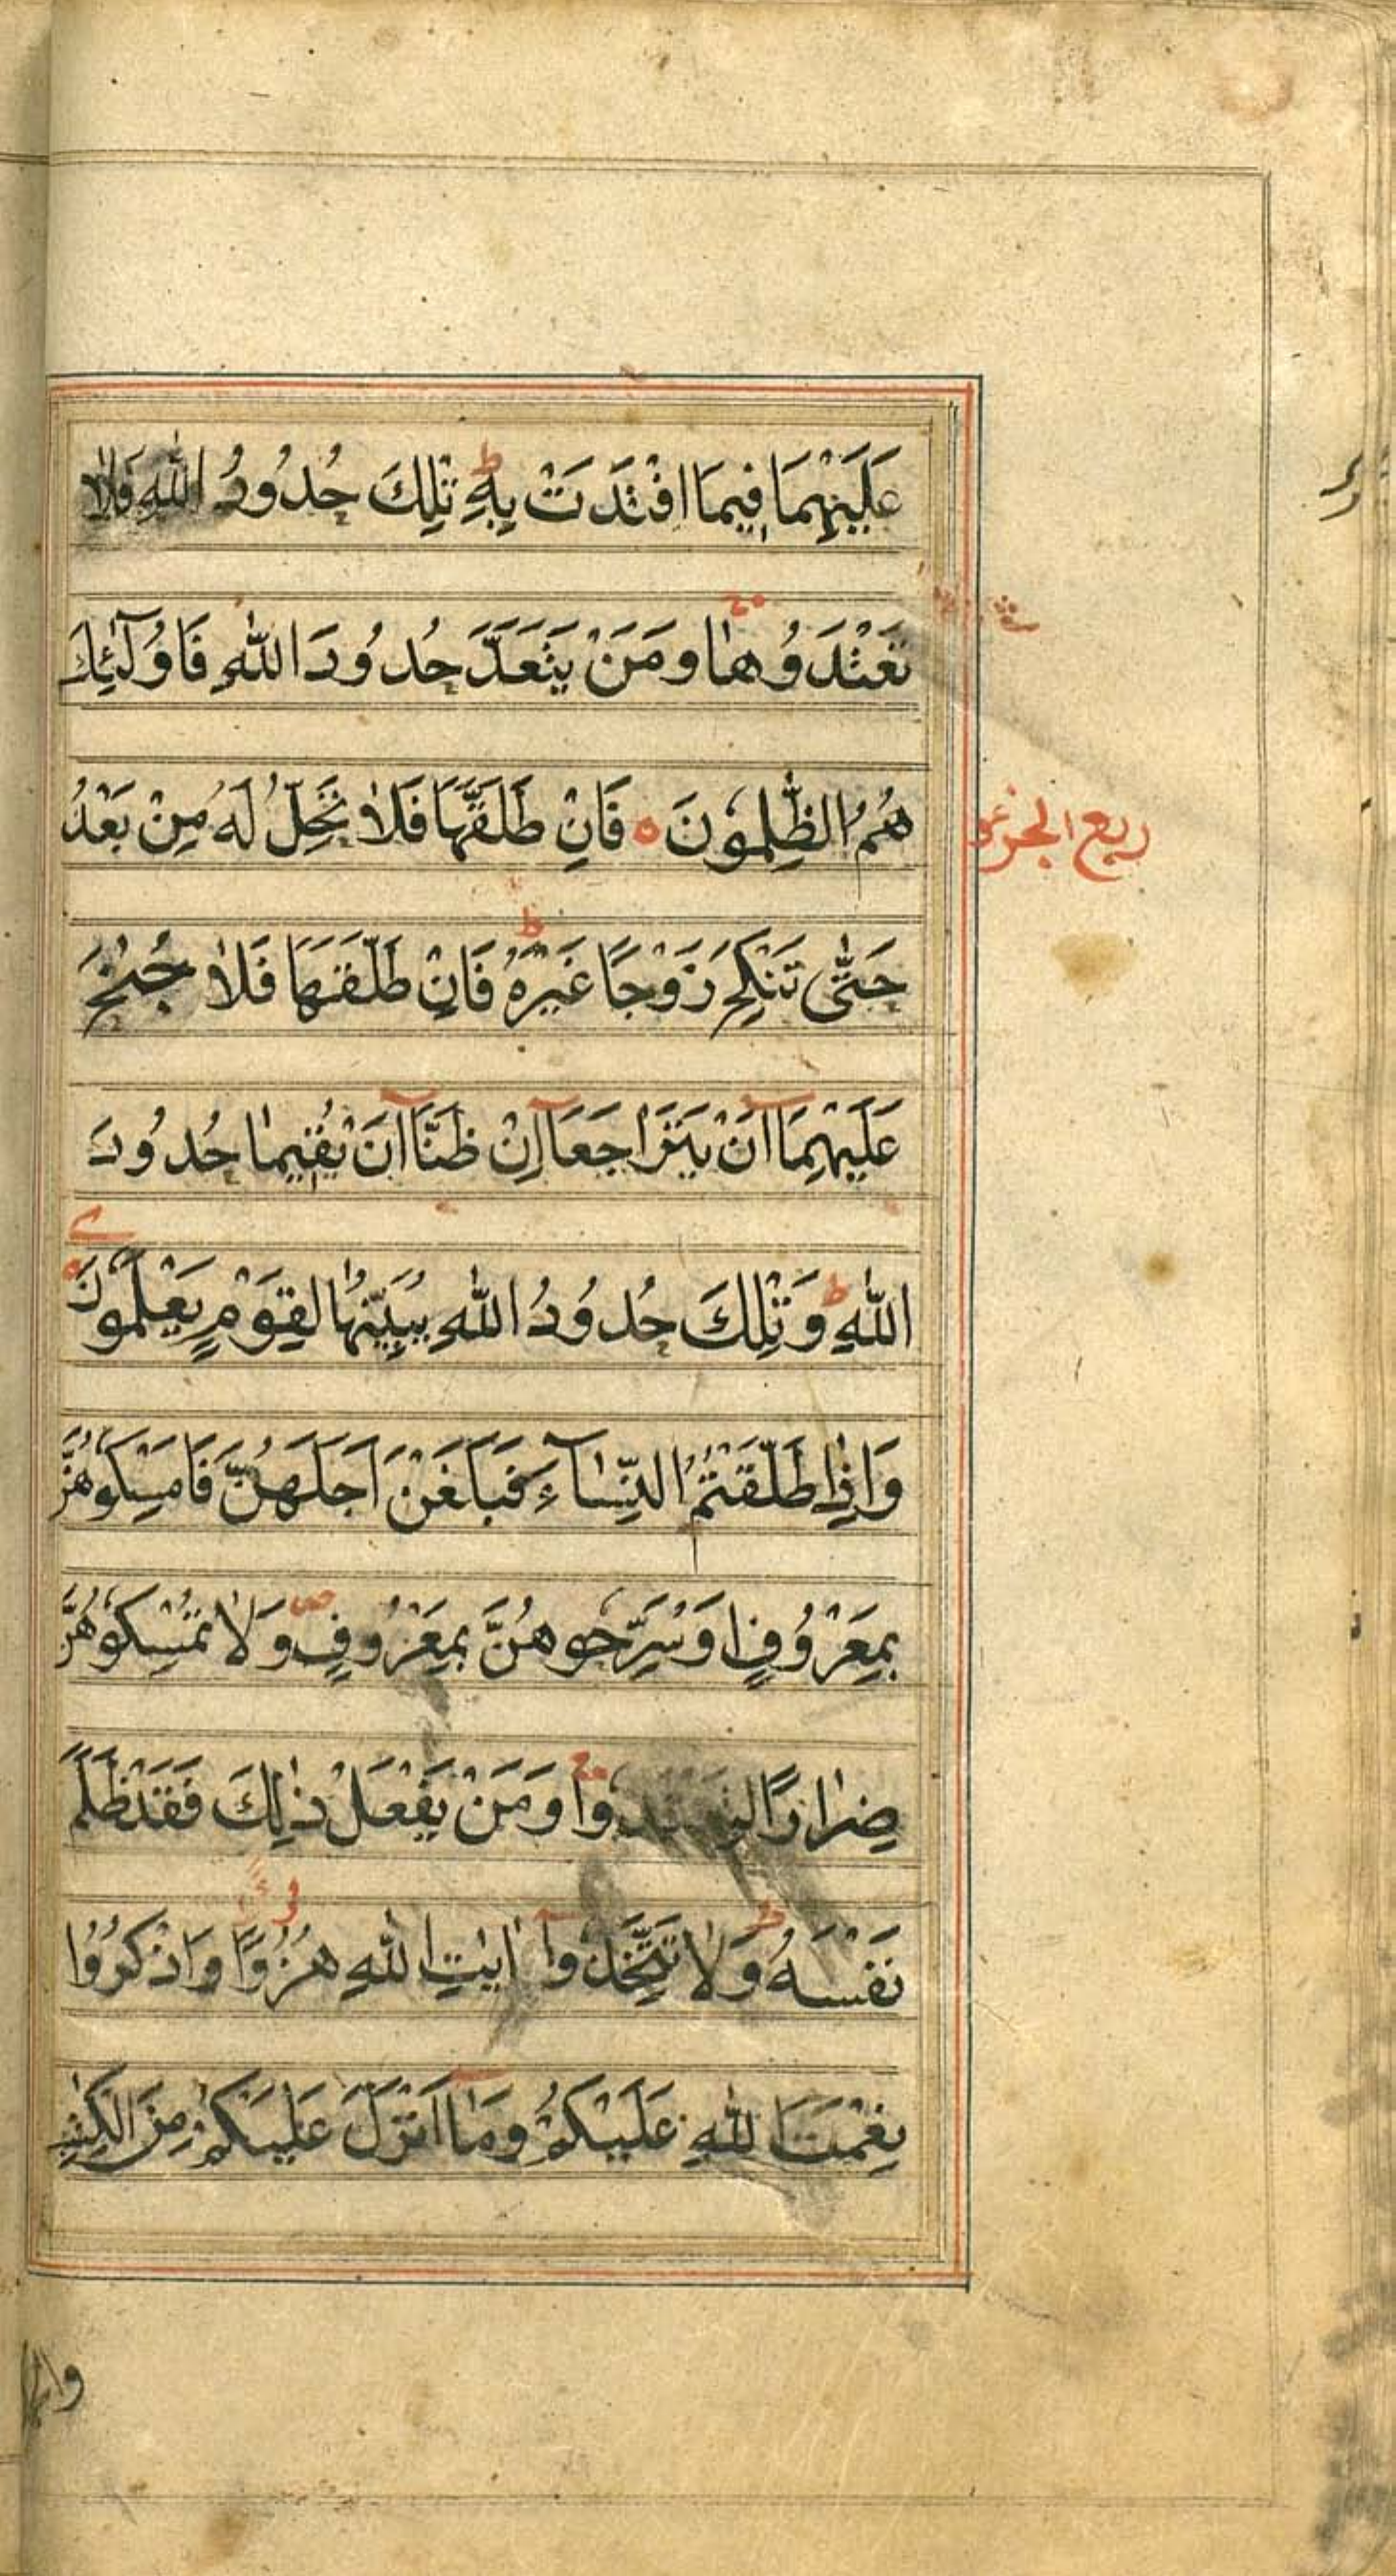 عَلَيْهِمَا فِيمَا افْتَدَتْ بِهِ ط تِلْكَ حُدُودُ اللّٰهِ فَلَا
تَعْتَدُوهَا وَمَنْ يَتَعَدَّ حُدُودَ اللّٰهِ فَاُولٰٓئِكَ
هُمُ الظّٰلِمُونَ ه فَاِنْ طَلَّقَهَا فَلَا تَحِلُّ لَهُ مِنْ بَعْدُ
ربع الجزء
حَتّٰى تَنْكِحَ زَوْجًا غَيْرَهُ ط فَاِنْ طَلَّقَهَا فَلَا جُنٰحَ
عَلَيْهِمَآ اَنْ يَتَرَاجَعَآ اِنْ ظَنَّآ اَنْ يُقِيمَا حُدُودَ
اللّٰهِ ط وَتِلْكَ حُدُودُ اللّٰهِ يُبَيِّنُهَا لِقَوْمٍ يَعْلَمُونَ
وَاِذَا طَلَّقْتُمُ النِّسَآءَ فَبَلَغْنَ اَجَلَهُنَّ فَاَمْسِكُوهُنَّ
بِمَعْرُوفٍ اَوْ سَرِّحُوهُنَّ بِمَعْرُوفٍ ص وَلَا تُمْسِكُوهُنَّ
ضِرَارًا وَمَنْ يَفْعَلْ ذٰلِكَ فَقَدْ ظَلَمَ
نَفْسَهُ ط وَلَا تَتَّخِذُوٓا اٰيٰتِ اللّٰهِ هُزُوًا وَاذْكُرُوا
نِعْمَتَ اللّٰهِ عَلَيْكُمْ وَمَآ اَنْزَلَ عَلَيْكُمْ مِنَ الْكِتٰبِ